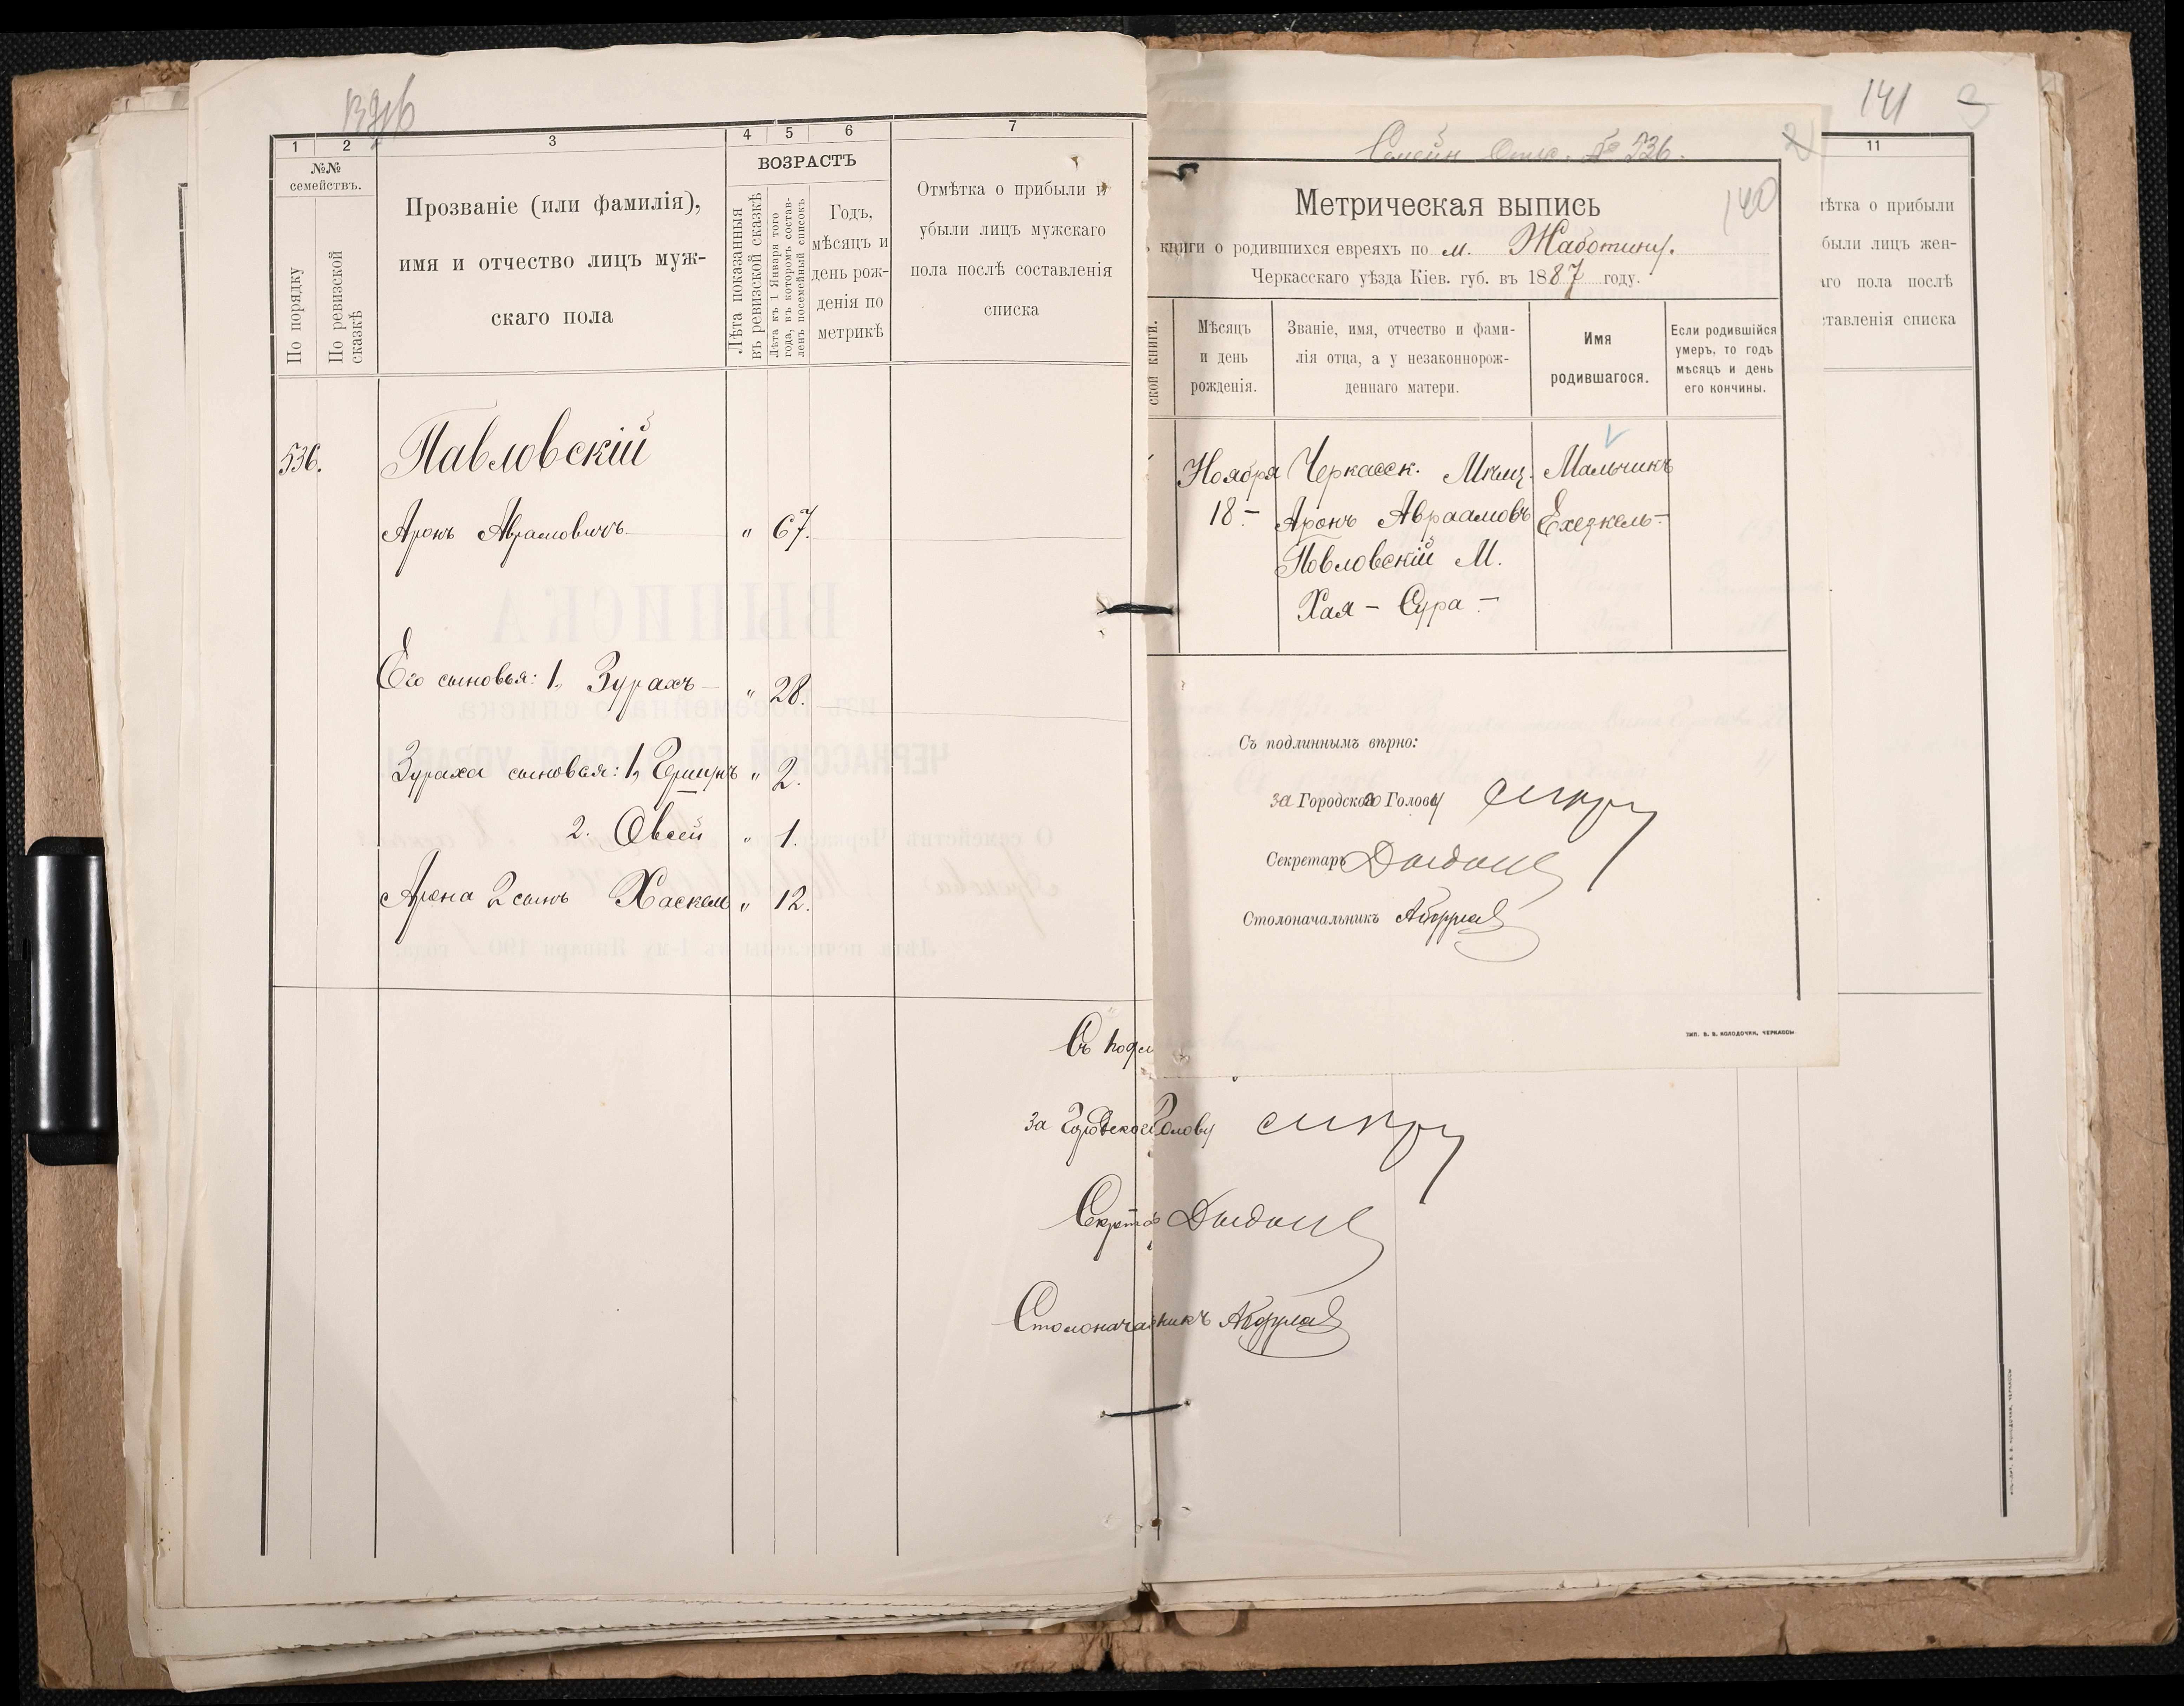 1
2
3
4
5
6
7
№№
семействъ.
По порядку
По ревизской
сказкѣ
Прозваніе (или фамилія),
имя и отчество лицъ муж-
скаго пола
ВОЗРАСТЪ
Лѣта показанныя
въ ревизской сказкѣ
Лѣта къ 1 Января того
года, въ которомъ состав-
ленъ посемейный списокъ
Годъ,
мѣсяцъ и
день рож-
денія по
метрикѣ
Отмѣтка о прибыли и
убыли лицъ мужскаго
пола послѣ составленія
списка
536.
Павловскій
Аронъ Абрамовичъ " 67.
Его сыновья: 1, Зурахъ " 28.
Зураха сыновья: 1, Гершунъ " 2.
2. Овсей " 1.
Арона 2 сынъ Хаскель " 12.
Съ подл
За Городского Голову
Секретарь
Столоначальникъ
141
Семейн. Спис. № 536.
2
140
Метрическая выпись
книги о родившихся евреяхъ по м. Жаботину.
Черкасскаго уѣзда Кіев. губ. въ 1887 году.
ской книги.
Мѣсяцъ
и день
рожденія.
Званіе, имя, отчество и фами-
лія отца, а у незаконнорож-
деннаго матери.
Имя
родившагося.
Если родившійся
умеръ, то годъ
мѣсяцъ и день
его кончины.
Ноября
18 -
Черкасск. Мѣщ.
Аронъ Авраамовъ
Павловскій М.
Хая - Сура -
Мальчикъ
Ехезкель -
Съ подлиннымъ вѣрно:
За Городского Голову
Секретарь
Столоначальникъ
ТИП. В. В. КОЛОДОЧКИ, ЧЕРКАССЫ
11
ѣтка о прибыли
были лицъ жен-
аго пола послѣ
ставленія списка